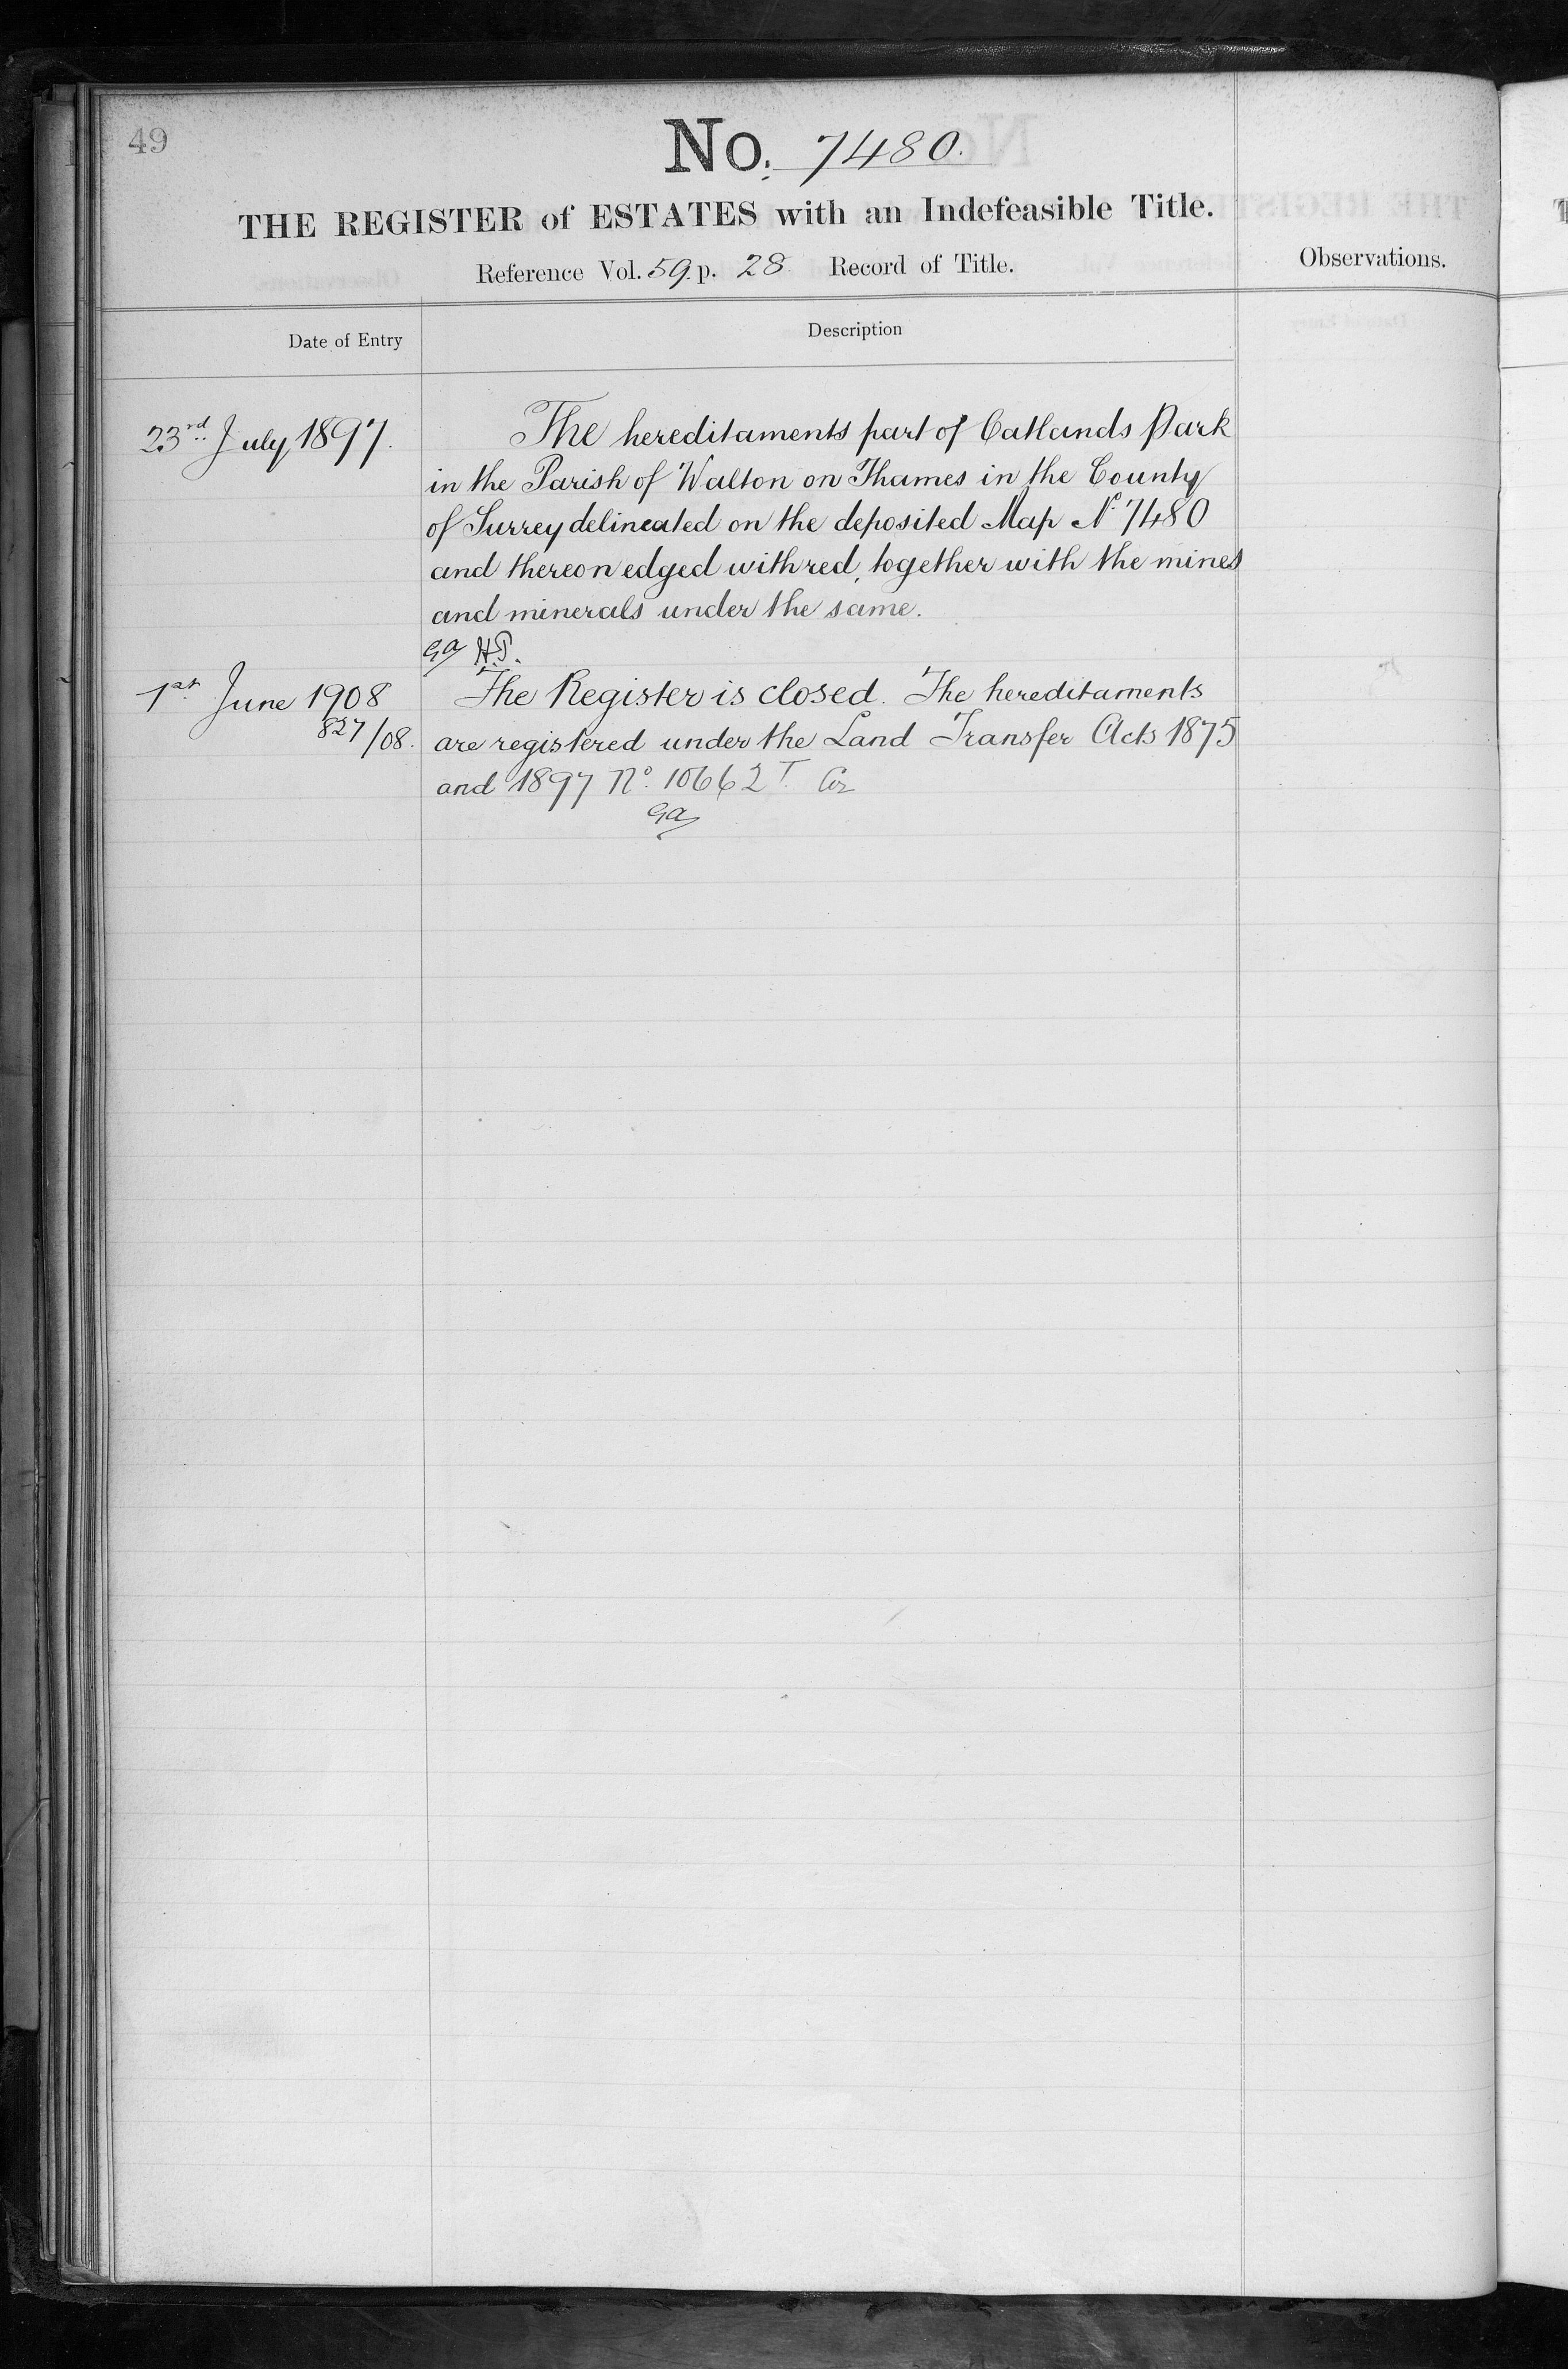 49
No. 7480.
THE REGISTER of ESTATES with an Indefeasible Title.
Reference Vol. 59. p. 28. Record of Title.
Observations.
Date of Entry
Description
23rd July 1897.
The hereditaments part of Oatlands Park
in the Parish of Walton on Thames in the County
of Surrey delineated on the deposited Map No. 7480
and thereon edged with red, together with the mines
and minerals under the same.
H.P.
1st June 1908
The Register is closed. The hereditaments
827/08.
are registered under the Land Transfer Acts 1875
and 1897 No. 10662 T.